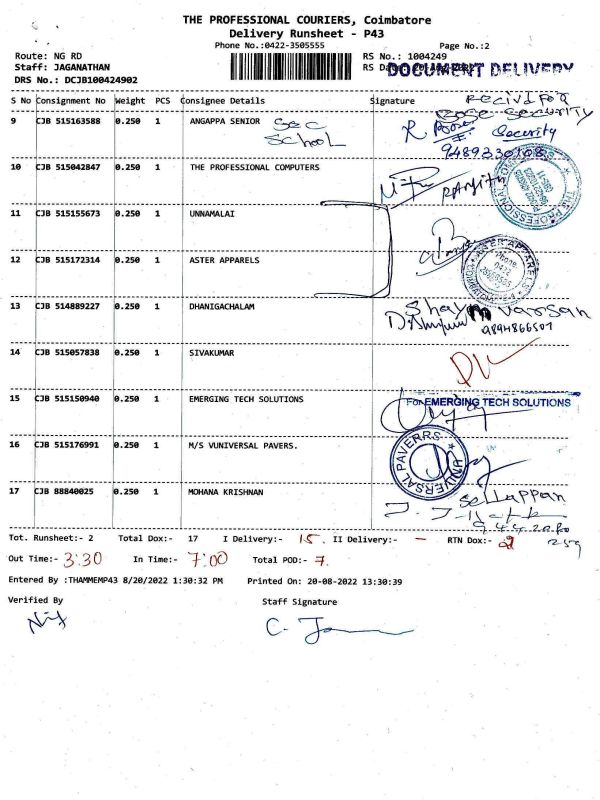 THE PROFESSIONAL COURIERS, Coimbatore
Delivery Runsheet - P43
Phone No.:0422-3505555 Page No.:2
Route: NG RD RS No.: 1004249
Staff: JAGANATHAN
DOCUMENT DELIVERY
DRS No.: DCJB100424902
S No Consignment No Weight PCS Consignee Details Signature
9 CJB 515163588 0.250 1 ANGAPPA SENIOR Sec School
Security
10 CJB 515042847 0.250 1 THE PROFESSIONAL COMPUTERS
11 CJB 515155673 0.250 1 UNNAMALAI
12 CJB 515172314 0.250 1 ASTER APPARELS
Phone
0422
13 CJB 514889227 0.250 1 DHANIGACHALAM
9894866507
14 CJB 515057838 0.250 1 SIVAKUMAR
15 CJB 515150940 0.250 1 EMERGING TECH SOLUTIONS
For EMERGING TECH SOLUTIONS
16 CJB 515176991 0.250 1 M/S VUNIVERSAL PAVERS.
UNIVERSAL PAVERRS
17 CJB 88840025 0.250 1 MOHANA KRISHNAN
Sellappan
Tot. Runsheet:- 2 Total Dox:- 17 I Delivery:- 15. II Delivery:- - RTN Dox:- 2
Out Time:- 3:30 In Time:- 7:00 Total POD:- 7.
Entered By :THAMMEMP43 8/20/2022 1:30:32 PM Printed On: 20-08-2022 13:30:39
Verified By Staff Signature